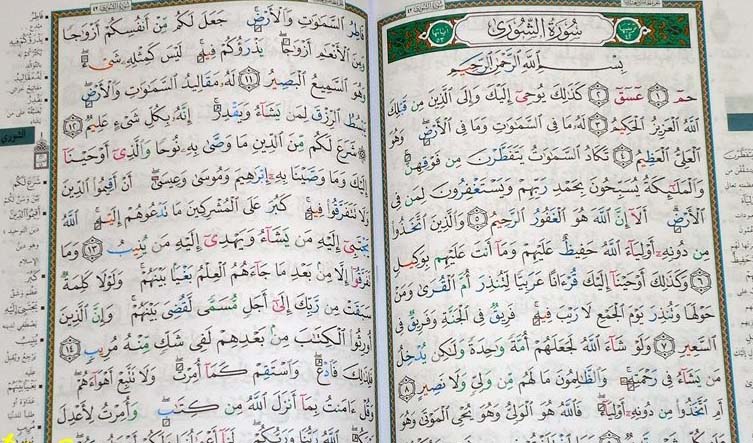 سُورَةُ الشُّورَىٰ
بِسْمِ اللَّهِ الرَّحْمَٰنِ الرَّحِيمِ
حمٓ ١ عٓسٓقٓ ٢ كَذَٰلِكَ يُوحِىٓ إِلَيْكَ وَإِلَى الَّذِينَ مِن قَبْلِكَ
اللَّهُ الْعَزِيزُ الْحَكِيمُ ٣ لَهُۥ مَا فِى السَّمَٰوَٰتِ وَمَا فِى الْأَرْضِ وَهُوَ
الْعَلِىُّ الْعَظِيمُ ٤ تَكَادُ السَّمَٰوَٰتُ يَتَفَطَّرْنَ مِن فَوْقِهِنَّ
وَالْمَلَٰٓئِكَةُ يُسَبِّحُونَ بِحَمْدِ رَبِّهِمْ وَيَسْتَغْفِرُونَ لِمَن فِى
الْأَرْضِ أَلَآ إِنَّ اللَّهَ هُوَ الْغَفُورُ الرَّحِيمُ ٥ وَالَّذِينَ اتَّخَذُوا۟
مِن دُونِهِۦٓ أَوْلِيَآءَ اللَّهُ حَفِيظٌ عَلَيْهِمْ وَمَآ أَنتَ عَلَيْهِم بِوَكِيلٍ
٦ وَكَذَٰلِكَ أَوْحَيْنَآ إِلَيْكَ قُرْءَانًا عَرَبِيًّا لِّتُنذِرَ أُمَّ الْقُرَىٰ وَمَنْ
حَوْلَهَا وَتُنذِرَ يَوْمَ الْجَمْعِ لَا رَيْبَ فِيهِ فَرِيقٌ فِى الْجَنَّةِ وَفَرِيقٌ فِى
السَّعِيرِ ٧ وَلَوْ شَآءَ اللَّهُ لَجَعَلَهُمْ أُمَّةً وَٰحِدَةً وَلَٰكِن يُدْخِلُ
مَن يَشَآءُ فِى رَحْمَتِهِۦ وَالظَّٰلِمُونَ مَا لَهُم مِّن وَلِىٍّ وَلَا نَصِيرٍ ٨
أَمِ اتَّخَذُوا۟ مِن دُونِهِۦٓ أَوْلِيَآءَ فَاللَّهُ هُوَ الْوَلِىُّ وَهُوَ يُحْىِ الْمَوْتَىٰ وَهُوَ
فَاطِرُ السَّمَٰوَٰتِ وَالْأَرْضِ جَعَلَ لَكُم مِّنْ أَنفُسِكُمْ أَزْوَٰجًا
وَمِنَ الْأَنْعَٰمِ أَزْوَٰجًا يَذْرَؤُكُمْ فِيهِ لَيْسَ كَمِثْلِهِۦ شَىْءٌ
وَهُوَ السَّمِيعُ الْبَصِيرُ ١١ لَهُۥ مَقَالِيدُ السَّمَٰوَٰتِ وَالْأَرْضِ
يَبْسُطُ الرِّزْقَ لِمَن يَشَآءُ وَيَقْدِرُ إِنَّهُۥ بِكُلِّ شَىْءٍ عَلِيمٌ ١٢
شَرَعَ لَكُم مِّنَ الدِّينِ مَا وَصَّىٰ بِهِۦ نُوحًا وَالَّذِىٓ أَوْحَيْنَآ
إِلَيْكَ وَمَا وَصَّيْنَا بِهِۦٓ إِبْرَٰهِيمَ وَمُوسَىٰ وَعِيسَىٰٓ أَنْ أَقِيمُوا۟ الدِّينَ
وَلَا تَتَفَرَّقُوا۟ فِيهِ كَبُرَ عَلَى الْمُشْرِكِينَ مَا تَدْعُوهُمْ إِلَيْهِ اللَّهُ
يَجْتَبِىٓ إِلَيْهِ مَن يَشَآءُ وَيَهْدِىٓ إِلَيْهِ مَن يُنِيبُ ١٣ وَمَا
تَفَرَّقُوٓا۟ إِلَّا مِنۢ بَعْدِ مَا جَآءَهُمُ الْعِلْمُ بَغْيًۢا بَيْنَهُمْ وَلَوْلَا كَلِمَةٌ
سَبَقَتْ مِن رَّبِّكَ إِلَىٰٓ أَجَلٍ مُّسَمًّى لَّقُضِىَ بَيْنَهُمْ وَإِنَّ الَّذِينَ
أُورِثُوا۟ الْكِتَٰبَ مِنۢ بَعْدِهِمْ لَفِى شَكٍّ مِّنْهُ مُرِيبٍ ١٤
فَلِذَٰلِكَ فَادْعُ وَاسْتَقِمْ كَمَآ أُمِرْتَ وَلَا تَتَّبِعْ أَهْوَآءَهُمْ
وَقُلْ ءَامَنتُ بِمَآ أَنزَلَ اللَّهُ مِن كِتَٰبٍ وَأُمِرْتُ لِأَعْدِلَ